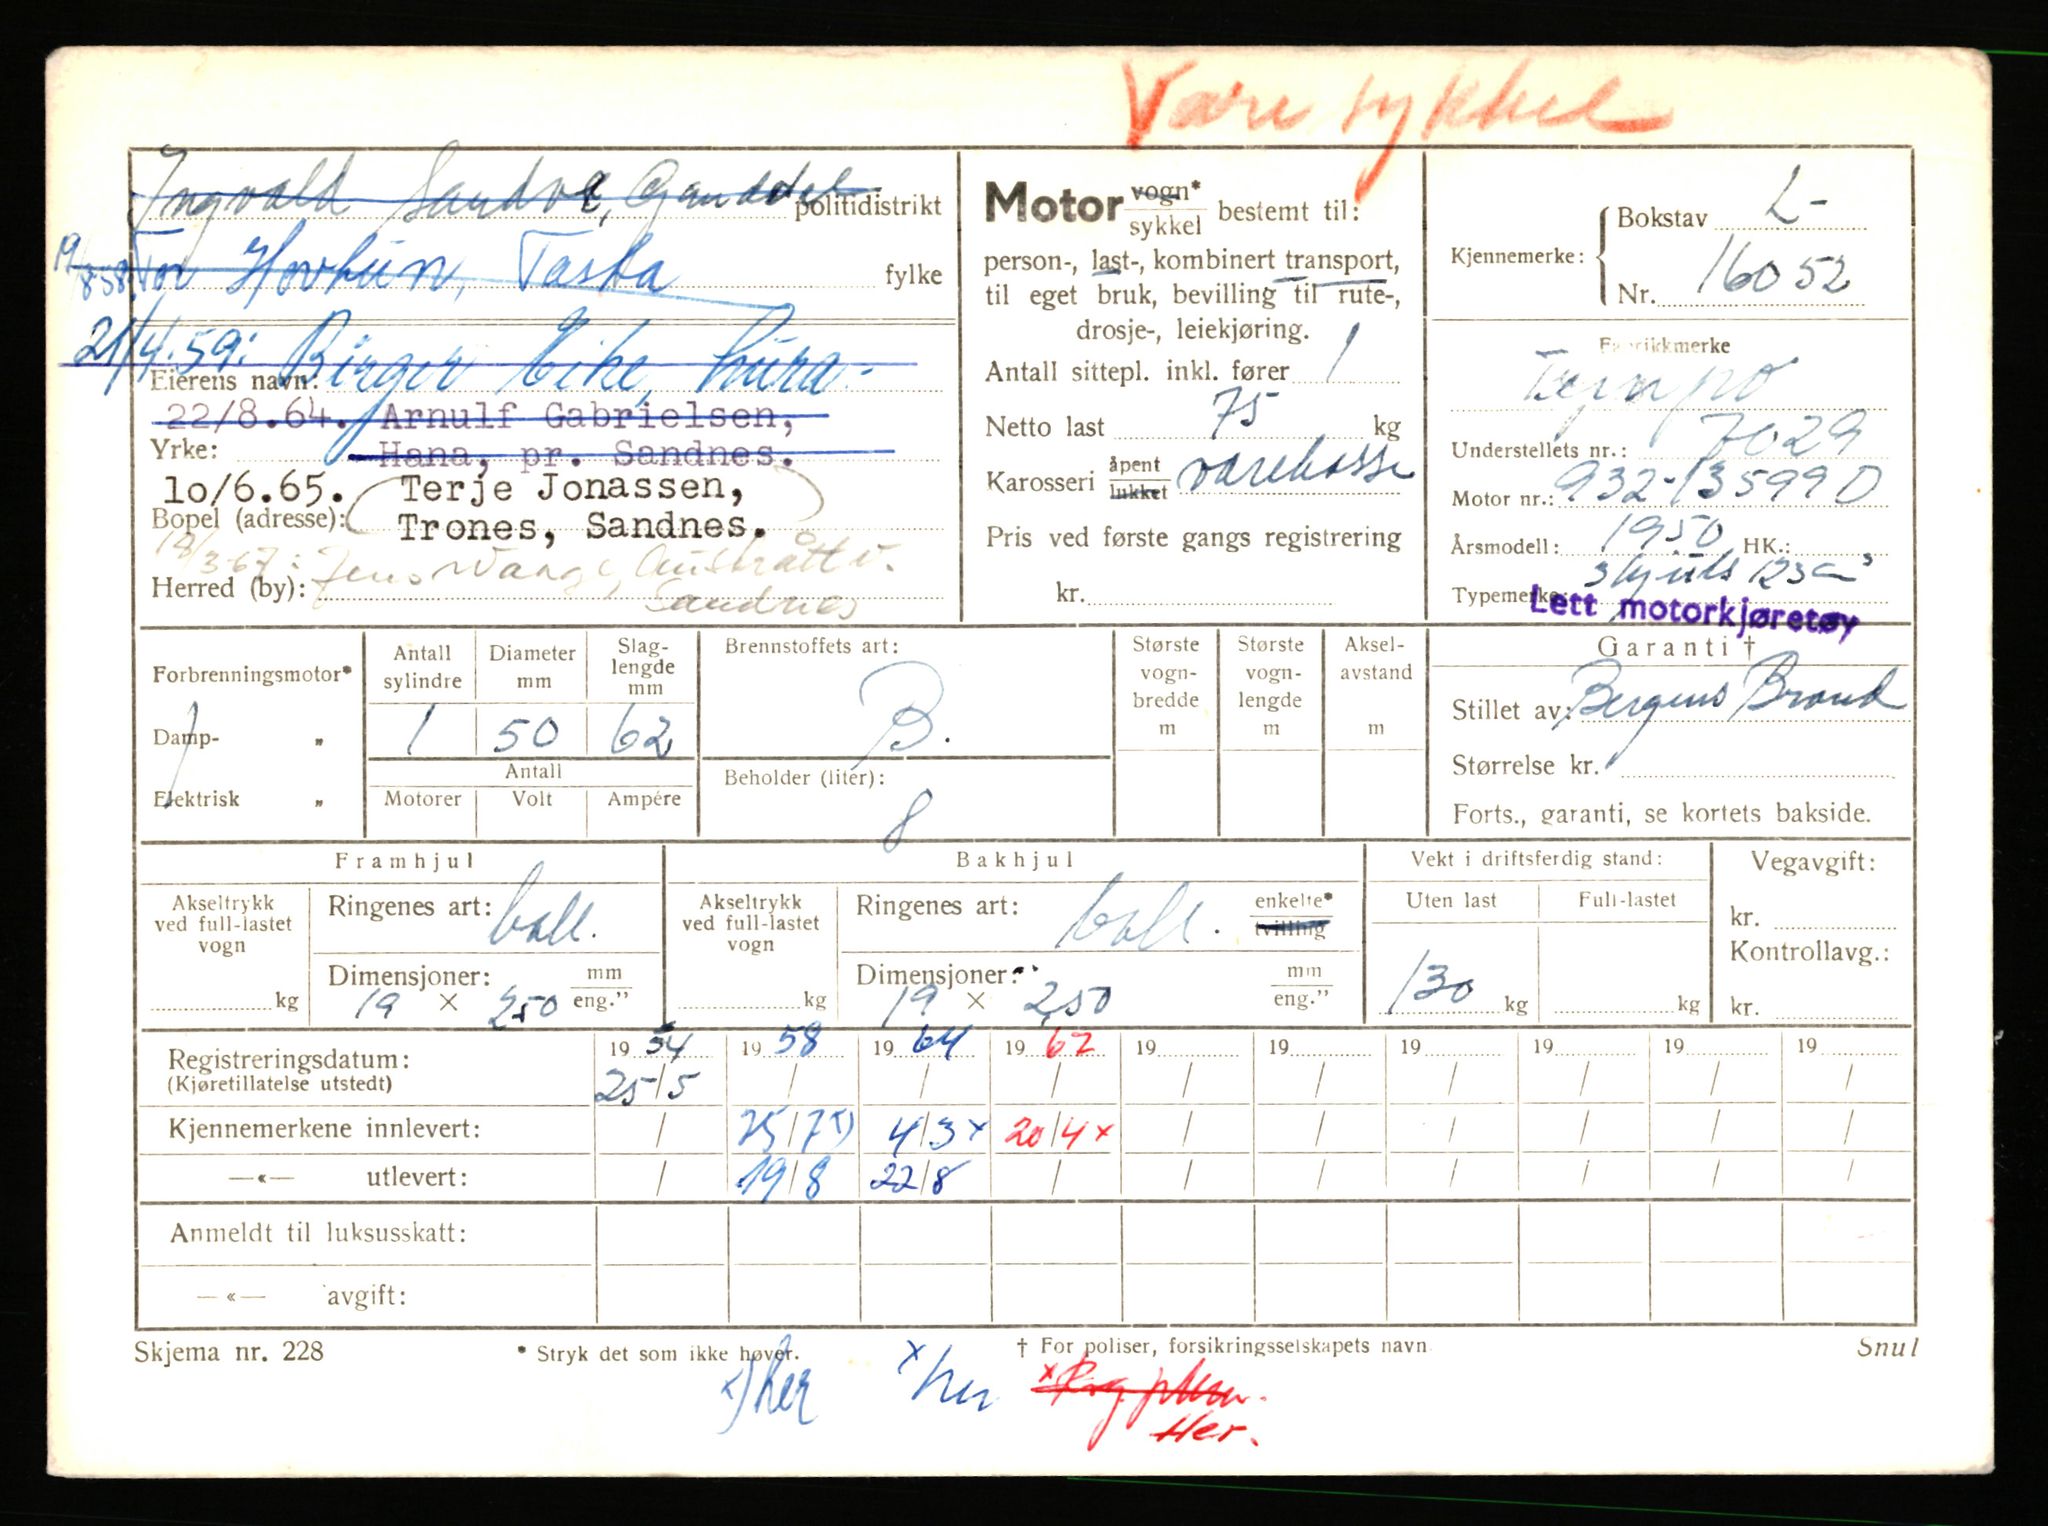 Vare sykkel
Ingvald Sandve, Ganddal politidistrikt
19/8 58 Tor Hovbun, Tasta fylke
21/4.59: Birger Eike, Lura.-
Eierens navn:
22/8.64. Arnulf Gabrielsen,
Yrke: Hana, pr. Sandnes.
10/6.65. Terje Jonassen,
Bopel (adresse): Trones, Sandnes.
18/3-67: Jens Wange, Austråttv.
Herred (by): Sandnes
Motor vogn* / sykkel bestemt til:
person-, last-, kombinert transport,
til eget bruk, bevilling til rute-,
drosje-, leiekjøring.
Antall sittepl. inkl. fører 1
Netto last 75 kg
Karosseri åpent / lukket varekasse
Pris ved første gangs registrering
kr.
Kjennemerke: Bokstav L-
Nr. 16052
Fabrikkmerke
Tempo
Understellets nr.: 7029
Motor nr.: 932-135990
Årsmodell: 1950 HK.:
Typemerke: 3 hjuls 123 cm³
Lett motorkjøretøy
Forbrenningsmotor*
Damp- „
Elektrisk „
Antall sylindre 1
Diameter mm 50
Slag-lengde mm 62
Antall
Motorer Volt Ampére
Brennstoffets art: B.
Beholder (liter): 8
Største vogn-bredde m
Største vogn-lengde m
Aksel-avstand m
Garanti †
Stillet av: Bergens Brand
Størrelse kr.
Forts., garanti, se kortets bakside.
Framhjul
Akseltrykk ved full-lastet vogn kg
Ringenes art: ball.
Dimensjoner: 19 × 2,50 mm / eng."
Bakhjul
Akseltrykk ved full-lastet vogn kg
Ringenes art: ball. enkelte* / tvilling
Dimensjoner: 19 × 2,50 mm / eng."
Vekt i driftsferdig stand:
Uten last 130 kg
Full-lastet kg
Vegavgift:
kr.
Kontrollavg.:
kr.
Registreringsdatum: 19 54 19 58 19 64 19 67 19 19 19 19 19 19
(Kjøretillatelse utstedt) 25/5 / / / / / / / / /
Kjennemerkene innlevert: / 25/7 4/3 x 20/4 x / / / / / /
—«— utlevert: / 19/8 22/8 / / / / / / /
Anmeldt til luksusskatt:
—«— avgift:
Skjema nr. 228 * Stryk det som ikke høver. † For poliser, forsikringsselskapets navn Snul
x) her x her x
Her.